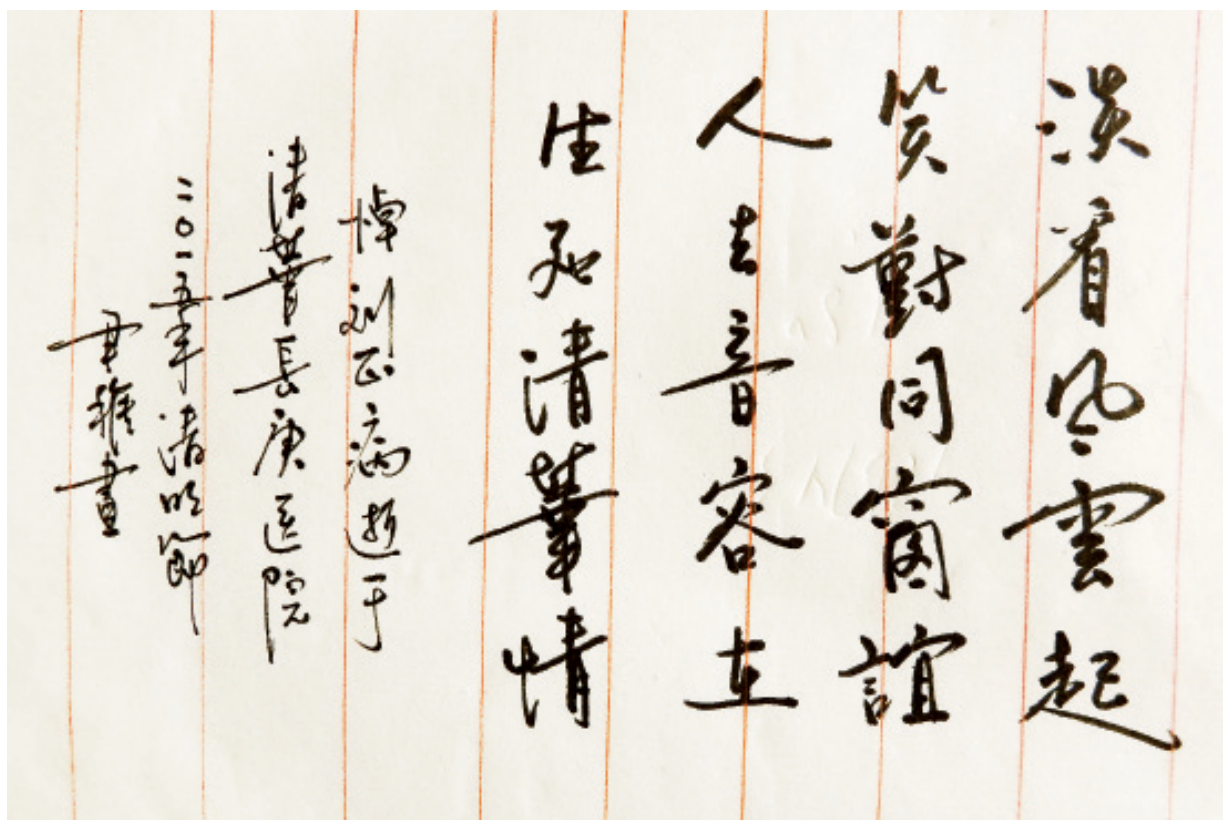 淡看风雲起
笑對同窗誼
人去音容在
生死清華情
悼刘正病逝于
清華長庚医院
二〇一五年清明節
尹稚書